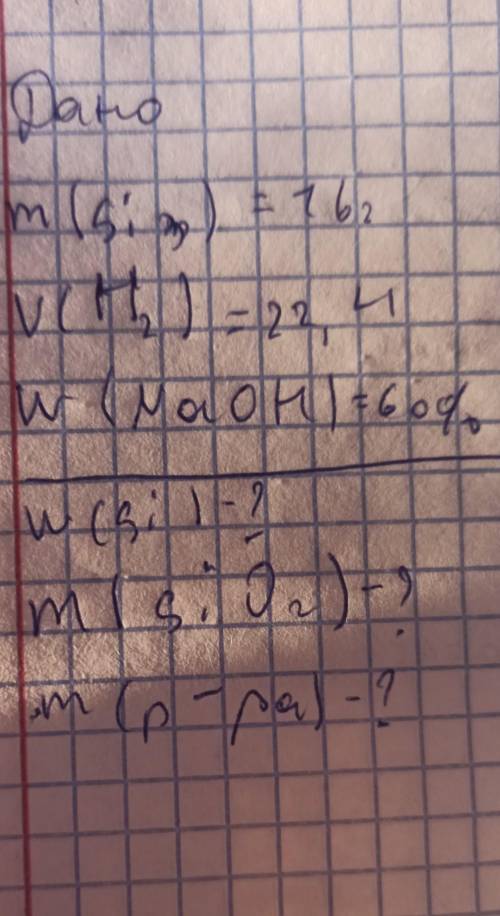 Дано
m(Si) = 16г
V(H₂) = 22,4
W(NaOH) = 60%
W(Si) - ?
m(SiO₂) - ?
m(р-ра) - ?